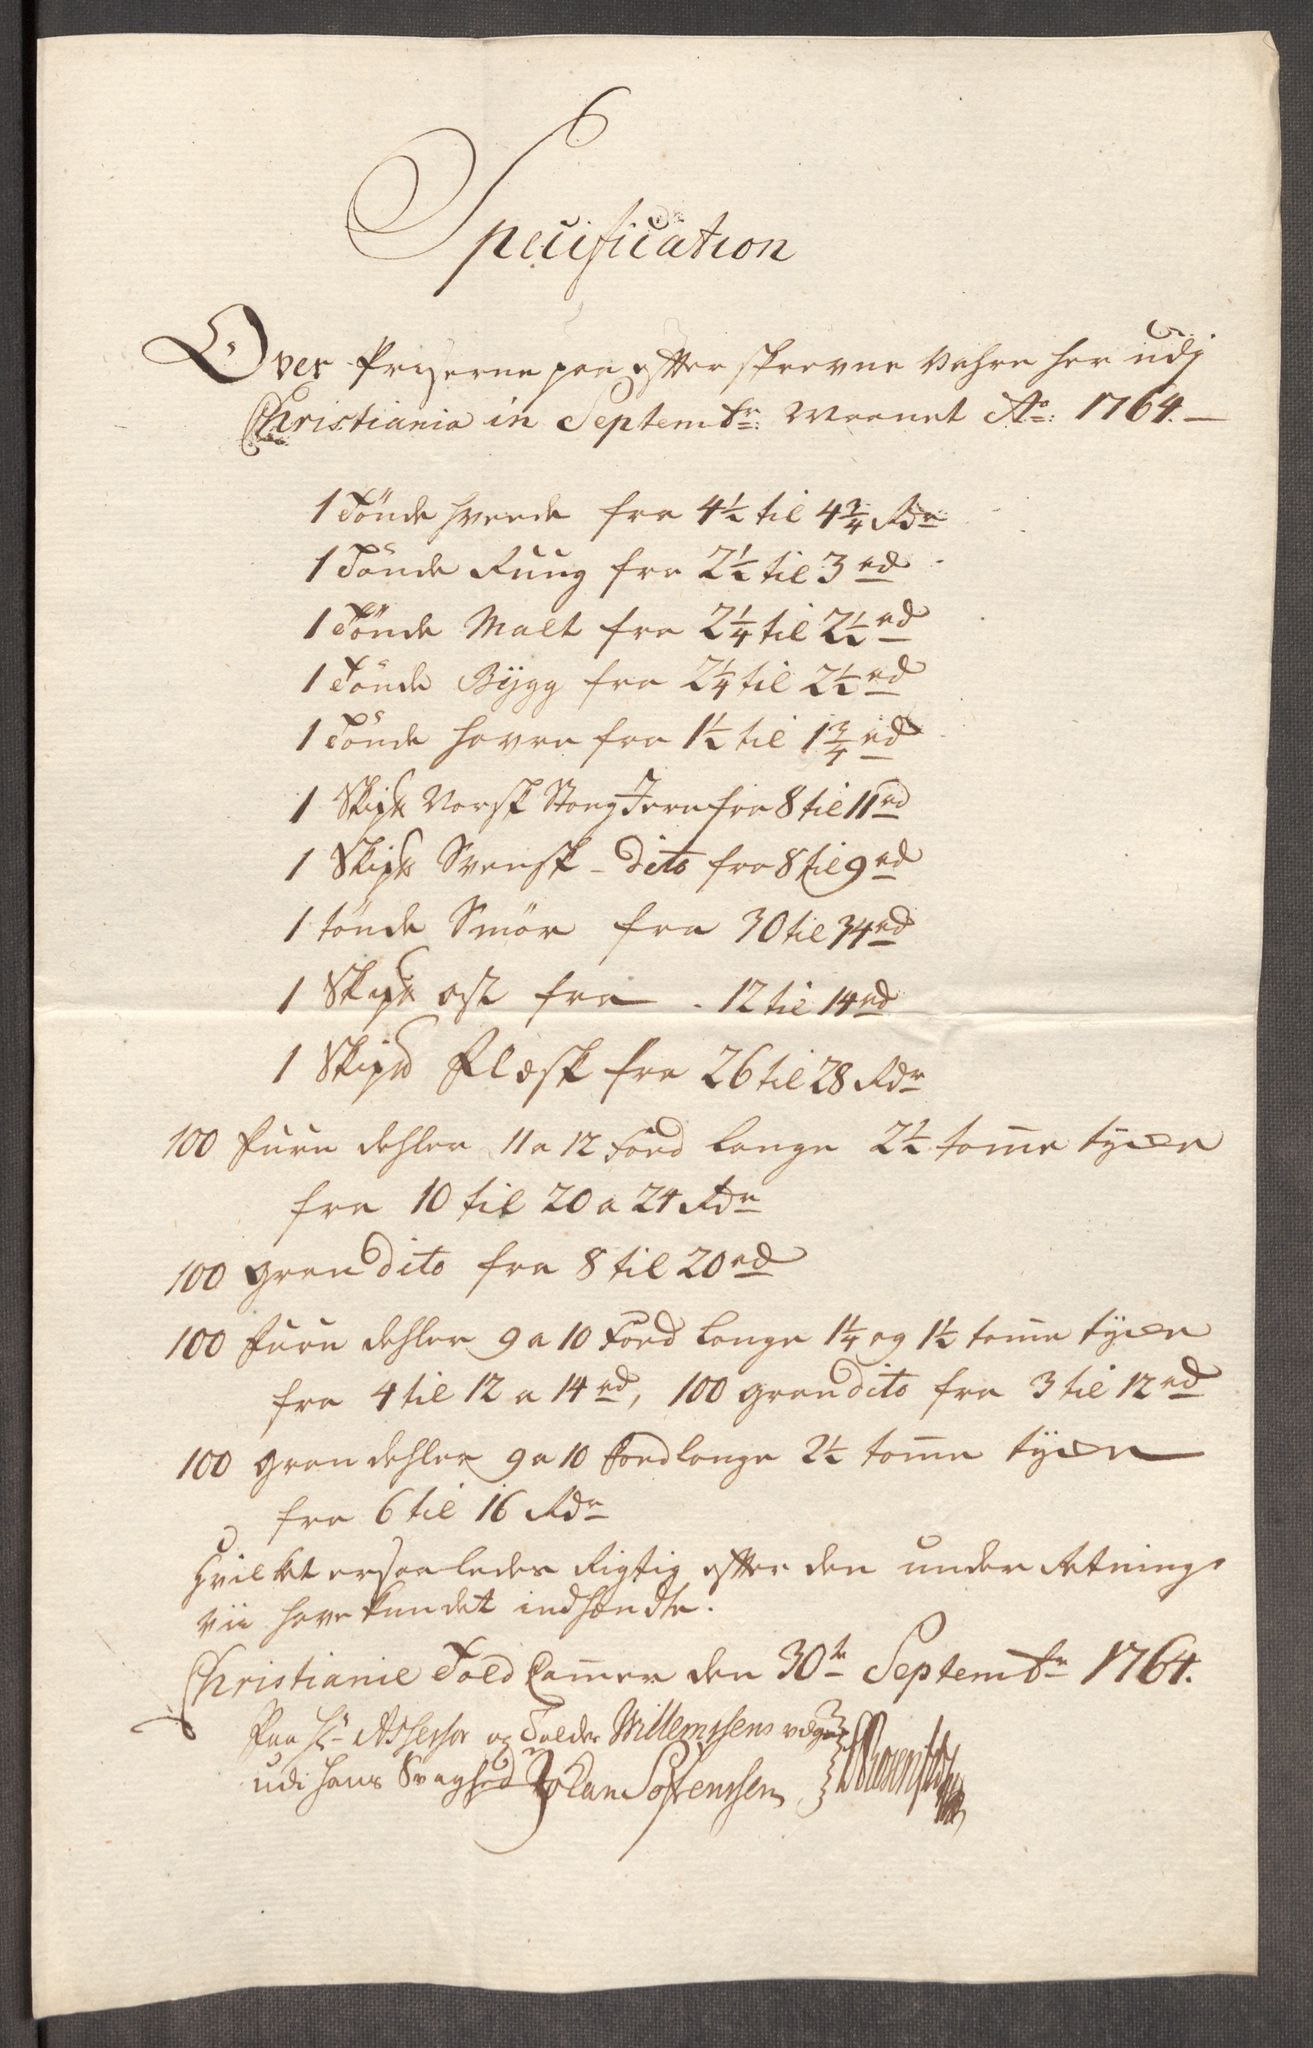 Specification
Over Priserne paa efterskrevne Vahre her udj
Christiania in Septembr: Maanet Ao: 1764.
1 Tönde hvede fra 4½ til 4¾ Rdr
1 Tönde Ruug fra 2½ til 3 rd
1 Tönde Malt fra 2¼ til 2½ rd
1 Tönde Bÿgg fra 2¼ til 2½ rd
1 Tönde havre fra 1½ til 1¾ rd
1 Skipd Norsk Stang Jern fra 8 til 11 rd
1 Skipd Svensk - dito fra 8 til 9 rd
1 tönde Smör fra 30 til 34 rd
1 Skipd ost fra - 12 til 14 rd
1 Skipd Flesk fra 26 til 28 Rdr
100 furu dehler 11 a 12 Foed lange 2½ tom̄e tycke
fra 10 til 20 a 24 Rdr
100 gran dito fra 8 til 20 rd
100 furu dehler 9 a 10 Foed lange 1¼ og 1½ tom̄e tycke
fra 4 til 12 a 14 rd, 100 gran dito fra 3 til 12 rd
100 gran dehler 9 a 10 foed lange 2½ tom̄e tÿcke
fra 6 til 16 Rdr
Hvilket er saaledes Rigtig efter den under Retning
vii have kundet indhændte.
Christianiæ Told Cam̄er den 30te Septembr 1764.
Paa Hr Assessor og Tolder Willemssens vegne
udi hans Svaghed Johan Sörenssen